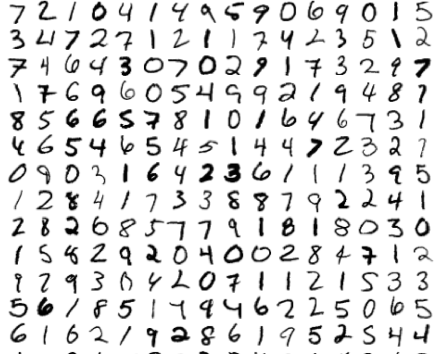 7 2 1 0 4 1 4 9 5 9 0 6 9 0 1 5
3 4 7 2 7 1 2 1 1 7 4 2 3 5 1 2
7 4 6 4 3 0 7 0 2 9 1 7 3 2 9 7
1 7 6 9 6 0 5 4 9 9 2 1 9 4 8 7
8 5 6 6 5 7 8 1 0 1 6 4 6 7 3 1
4 6 5 4 6 5 4 5 1 4 4 7 2 3 2 7
0 9 0 3 1 6 4 2 3 6 1 1 1 3 9 5
1 2 8 4 1 7 3 3 8 8 7 9 2 2 4 1
2 8 2 6 8 5 7 7 9 1 8 1 8 0 3 0
1 5 8 2 9 2 0 4 0 0 2 8 4 7 1 2
9 2 9 3 0 4 2 0 7 1 1 2 1 5 3 3
5 6 1 8 5 1 4 4 6 2 2 5 0 6 5
6 1 6 2 1 9 2 8 6 1 9 5 2 5 4 4